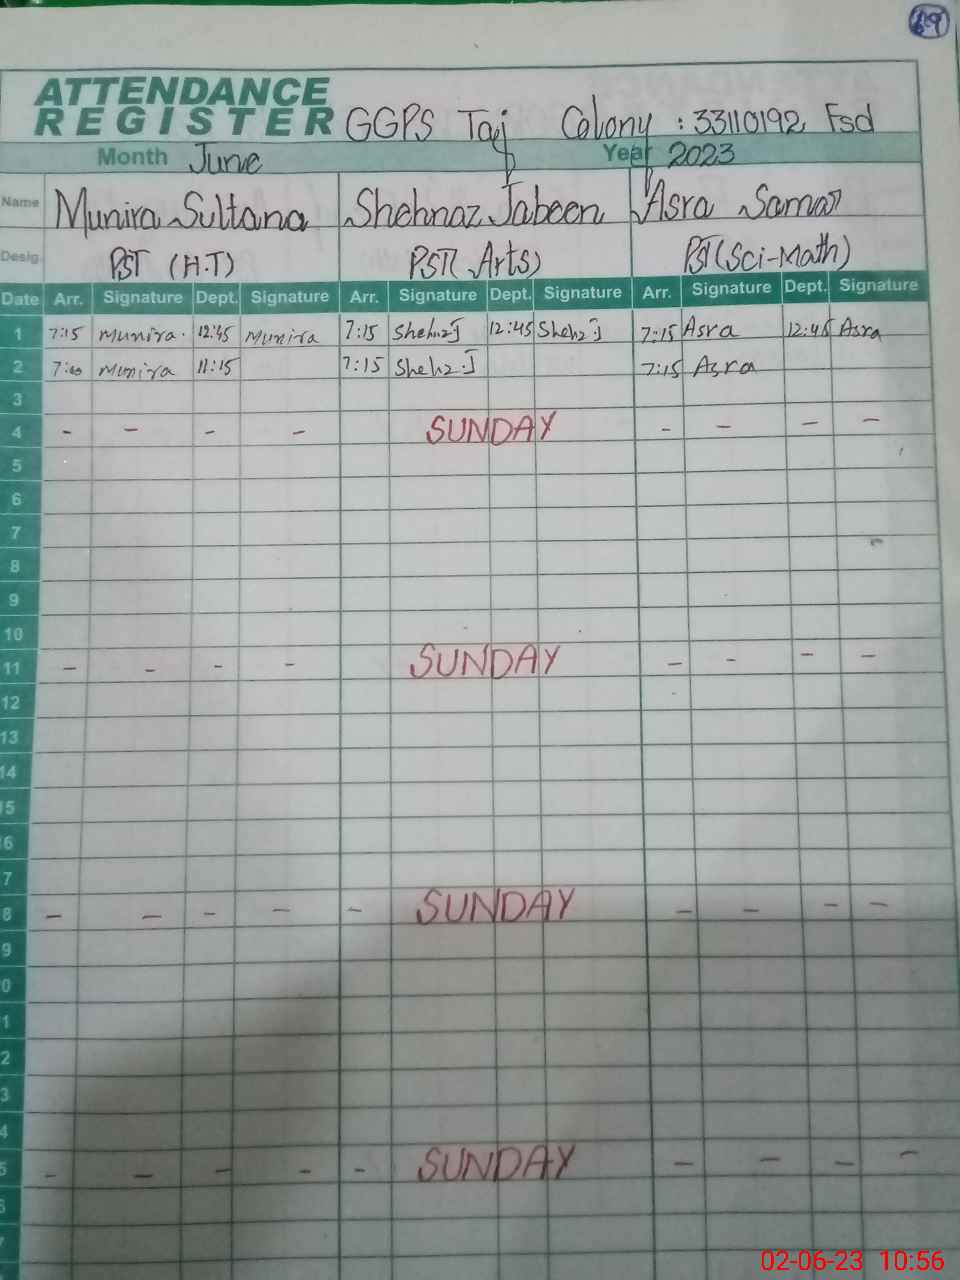 69
ATTENDANCE
REGISTER GGPS Taj Colony : 33110192 Fsd
Month June Year 2023
Name Munira Sultana Shehnaz Jabeen Asra Samar
Desig. PST (H.T) PST( Arts) PST(Sci-Math)
Date Arr. Signature Dept. Signature Arr. Signature Dept. Signature Arr. Signature Dept. Signature
1 7:15 Munira 12:45 Munira 7:15 Shehz J 12:45 Shehz J 7:15 Asra 12:45 Asra
2 7:00 Munira 11:15 7:15 Shehz J 7:15 Asra
3
4 - - - - SUNDAY - - - -
5
6
7
8
9
10
11 - - - - SUNDAY - - - -
12
13
14
5
6
7
8 - - - - - SUNDAY - - - -
9
0
1
2
3
4
5 - - - - - SUNDAY - - - -
6
7
02-06-23 10:56